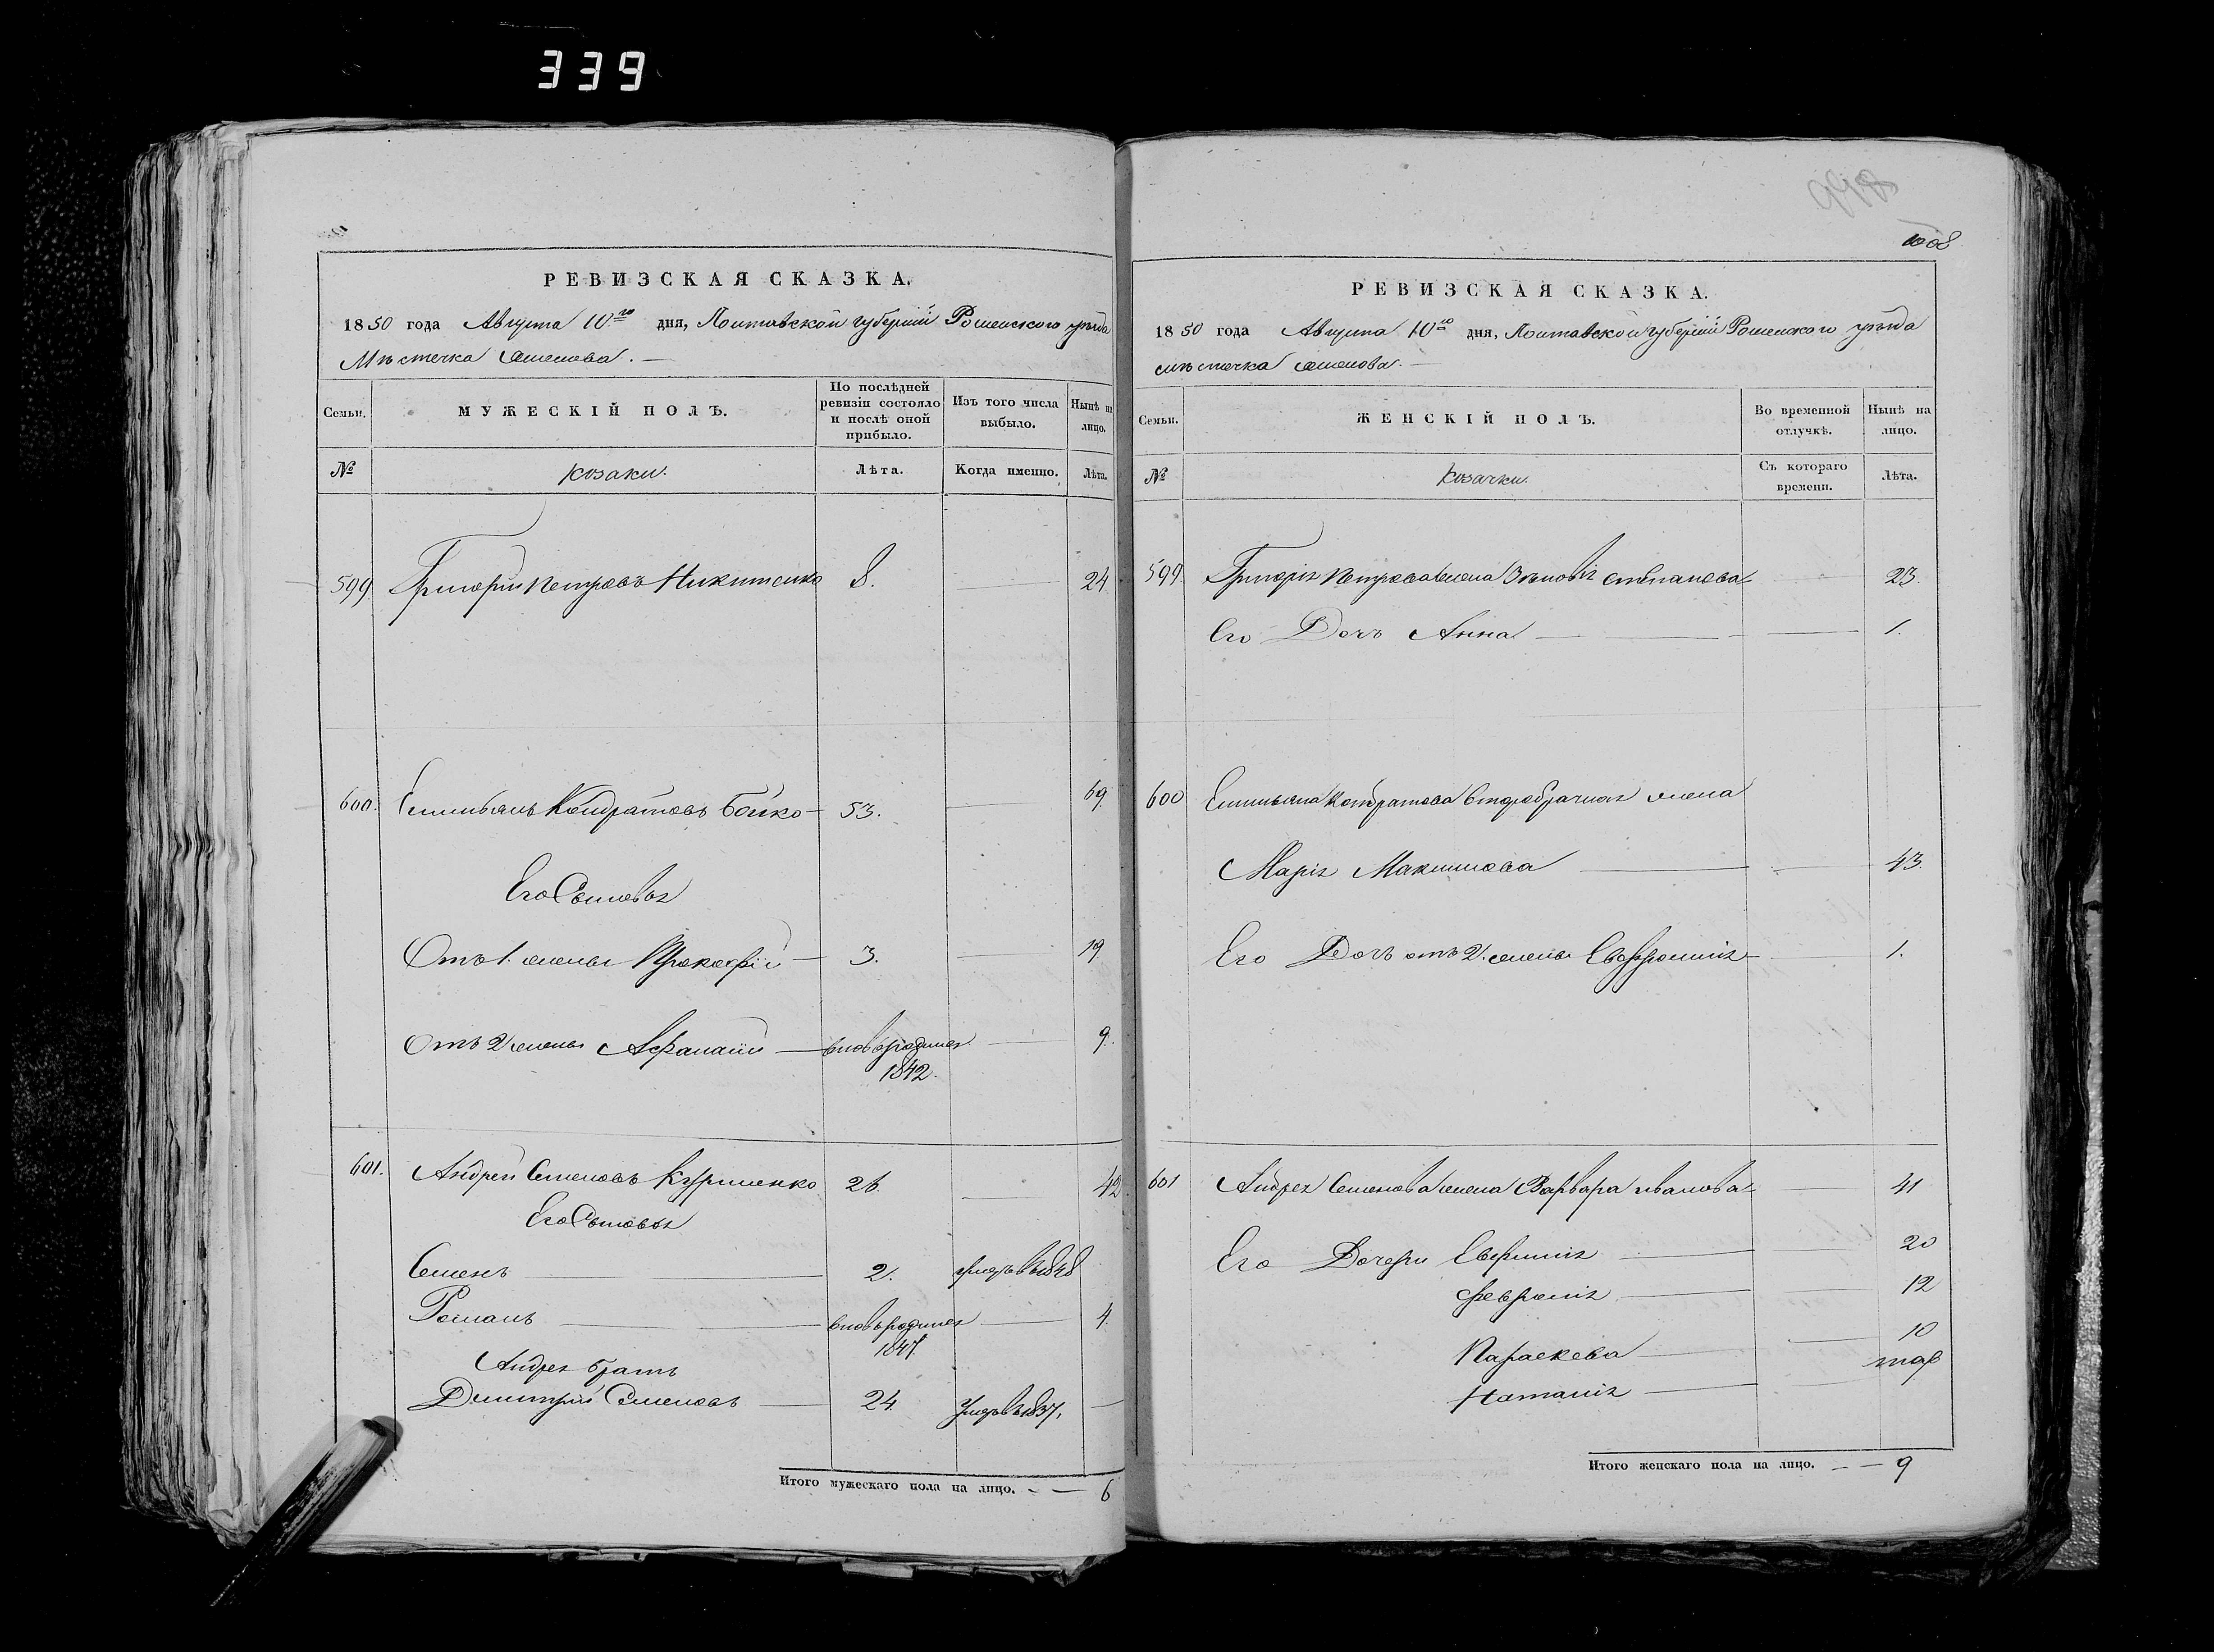 339
РЕВИЗСКАЯ СКАЗКА.
1850 года Августа 10го дня, Полтавской губернии Роменского уѣзда
Мѣстечка Смелова.
Семьи.
МУЖЕСКІЙ ПОЛЪ.
По послѣдней ревизіи состояло и послѣ оной прибыло.
Изъ того числа выбыло.
Нынѣ на лицо.
№
Козаки.
Лѣта.
Когда именно.
Лѣта.
599 Григорій Петровъ Никитенко 8. 24
600. Емельянъ Кондратовъ Бойко 53. 69
Его Сыновья
Отъ 1. жены Прокофій 3. 19
Отъ 2 жены Афанасій вновьрожден 9.
1842.
601. Андрей Семеновъ 26. 42
Его Сыновья
Семенъ 2. умеръ в 1848
Романъ вновьрожден 4.
1847
Андрея братъ
Димитрий Семеновъ 24. Умеръ в 1837.
Итого мужескаго пола на лицо. 6
1008
РЕВИЗСКАЯ СКАЗКА.
1850 года Августа 10го дня, Полтавской губерніи Роменского уѣзда
мѣстечка Смелова.
Семьи.
ЖЕНСКІЙ ПОЛЪ.
Во временной отлучкѣ.
Нынѣ на лицо.
№
Козачки.
Съ котораго времени.
Лѣта.
599. Григорія Петрова жена Зѣновія Степанова 23.
Его Дочь Анна 1.
600 Емельяна Кондратова второбрачная жена
Марія Максимова 43.
Его Дочь отъ 2. жены Евфросинія 1.
601 Андрея Семенова жена Варвара Иванова 41
Его Дочери Евфимия 20
Феврония 12
Параскева 10
Наталия
Итого женскаго пола на лицо. 9